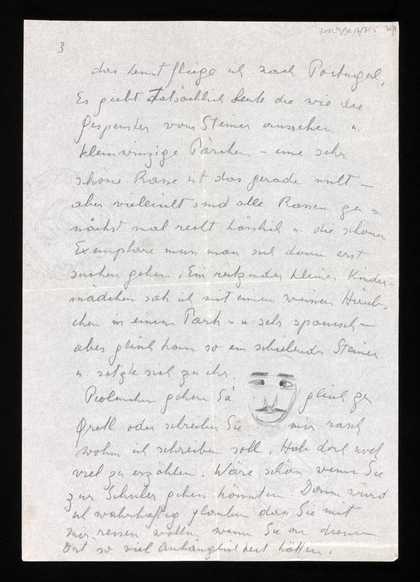 3
das kennt fliege ich nach Portugal.
Es giebt tatsächlich Leute die wie die
Gespenster von Steiner aussehen u.
kleinwinzige Pärchen – eine sehr
schöne Rasse ist das gerade nicht –
aber vielleicht sind alle Rassen zu =
nächst mal recht hässlich u. die schönen
Exemplare muss man sich dann erst
suchen gehen. Ein reizendes kleines Kinder=
mädchen sah ich mit einem weissen Häub=
chen in einem Park – u sehr spanisch –
aber gleich kam so ein schielender Steiner
u setzte sich zu ihr.
gehen Sie gleich zu
Gretl oder schreiben Sie mir nach
wohin ich schreiben soll. Hab doch noch
viel zu erzählen. Wäre schön wenn Sie
zur Schule gehen könnten. Dann würd
ich wahrhaftig glauben dass Sie mit
mir reisen wollen wenn Sie an diesem
Ort so viel Anhänglichkeit hätten.